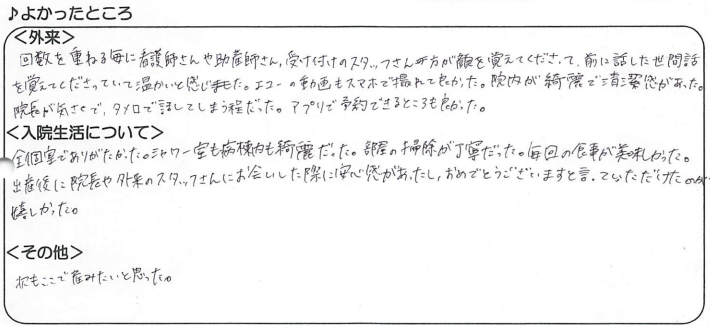 ♪よかったところ
<外来>
回数を重ねる毎に看護師さんや助産師さん、受け付けのスタッフさん方が顔を覚えてくださって、前に話した世間話
を覚えてくださっていて温かいと感じました。エコーの動画もスマホで撮れて良かった。院内が綺麗で清潔感があった。
院長が気さくで、タメ口で話してしまう程だった。アプリで予約できるところも良かった。
<入院生活について>
全個室でありがたかった。シャワー室も病棟内も綺麗だった。部屋の掃除が丁寧だった。毎回の食事が美味しかった。
出産後に院長や外来のスタッフさんにお会いした際に安心感があったし、おめでとうございますと言っていただけたのが
嬉しかった。
<その他>
次もここで産みたいと思った。